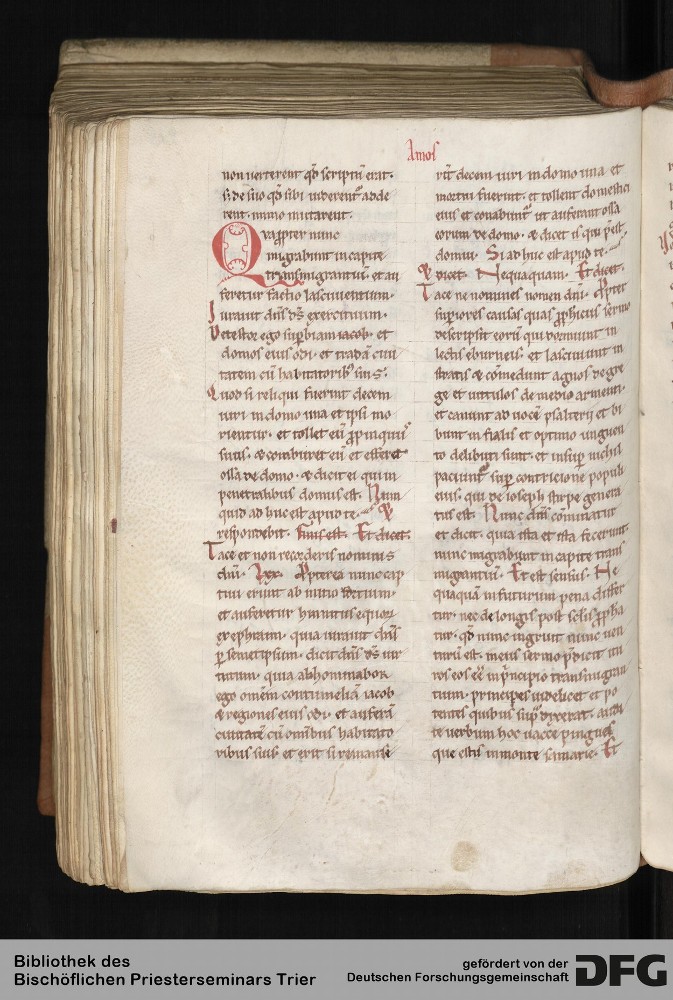 Amos
non uerterent qd scriptu erat.
s; de suo qd sibi uiderent adde
rent. immo mutarent.
Qvapter nunc
migrabunt in capite
transmigrantiu. et au
feretur factio lasciuientium.
Iurauit dns ds exercituum.
Detestor ego supbiam iacob. et
domos eius odi. et tradā ciui
tatem cū habitatorib; suis.
Quod si reliqui fuerint decem
uiri in domo una et ipsi mo
rientur. et tollet eū ppinquus
suus. & comburet eū et efferet
ossa de domo. & dicit ei qui in
penetralibus domus est. Num
quid ad huc est apud te. &
respondebit. finis est. Et dicet.
Tace et non recorderis nominis
dni. lxx. Ppterea nunc cap
tiui erunt ab initio
et auferetur hinnitus equor
ex ephraim. quia iurauit dns
p semetipsum. dicit dns ds uir
tutum. quia abhominabor
ego omem contumeliā iacob
& regiones eius odi. et auferā
ciuitatē cū omibus habitato
ribus suis. et erit si remanse
rit decem uiri in domo una et
mortui fuerint. et tollent domestici
eius et conabunt ut auferant ossa
eorum de domo. & dicet is qui pest
domui. Si ad huc est apud te.
& dicet. Nequaquam. Et dicet.
Tace ne nomines nomen dni. Ppter
supiores causas quas pphicus sermo
descripsit eorū qui dormiunt in
lectis eburneis. et lasciuiunt in
stratis & comedunt agnos de gre
ge et uitulos de medio armenti.
et canunt ad uocē psalterii et bi
bunt in fialis et optimo unguen
to delibuti sunt. et insup nichil
paciunt sup contricione populi
eius. qui de ioseph stirpe genera
tus est. Nunc dns cominatur
et dicit. quia ista et ista fecerunt.
nunc migrabunt in capite trans
migrantiu. Et est sensus. Ne
quaquā in futurum pena differ
tur. nec de longis post sclis ppha
tur. qd nunc ingruit nunc uen
turū est. meus sermo pdicit itu
ros eos eē in pncipio transmigran
tium. principes uidelicet et po
tentes quibus sup dixerat. audi
te uerbum hoc uacce pingues
que estis in monte samarie. Et
Bibliothek des
Bischöflichen Priesterseminars Trier
gefördert von der
Deutschen Forschungsgemeinschaft
DFG